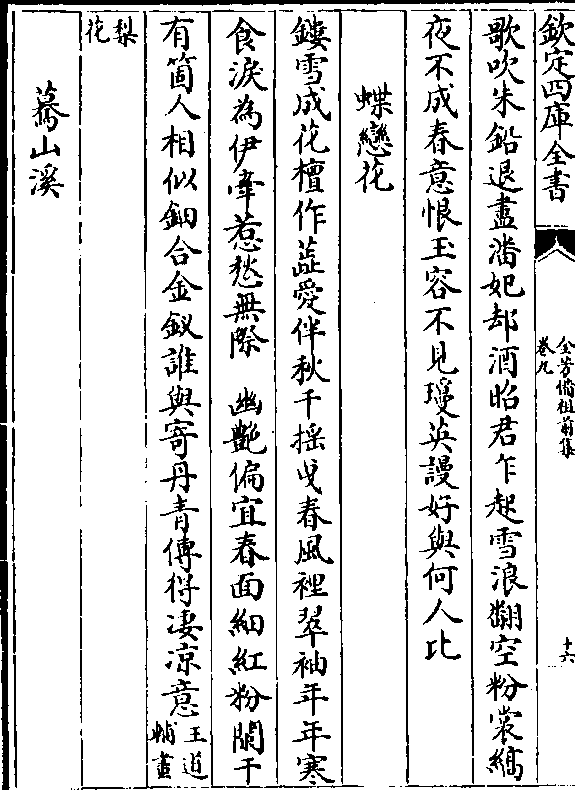 欽定四庫全書
全芳備祖前集
卷九
十六
歌吹朱鉛退盡潘妃却酒昭君乍起雪浪翻空粉裳縞
夜不成春意恨玉容不見瓊英謾好與何人比
蝶戀花
鏤雪成花檀作蕋愛伴秋千揺曵春風裡翠袖年年寒
食淚為伊牽惹愁無際　幽艷偏宜春雨細紅粉闌干
有箇人相似鈿合金釵誰與寄丹青傳得淒凉意王道
輔畫
梨
花
驀山溪